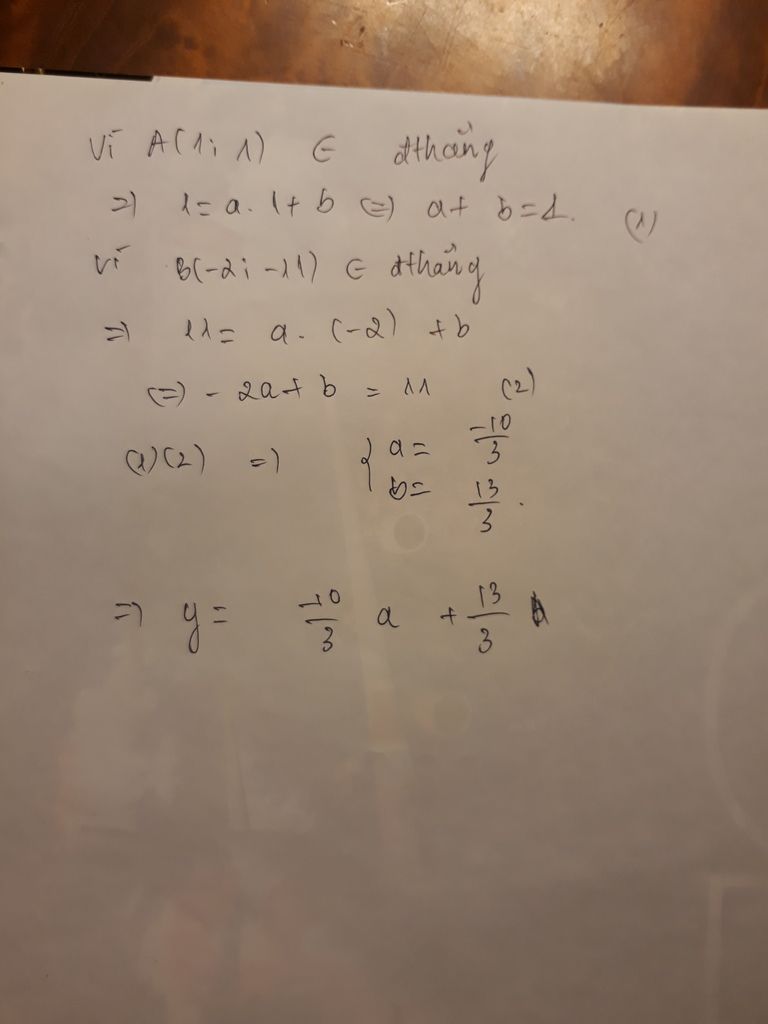 Vì A(1; 1) ∈ đthẳng
=> 1 = a. 1 + b <=> a + b = 1. (1)
Vì B(-2; -11) ∈ đthẳng
=> 11 = a. (-2) + b
<=> - 2a + b = 11 (2)
(1)(2) => { a = -10/3
b = 13/3.
=> y = -10/3 a + 13/3